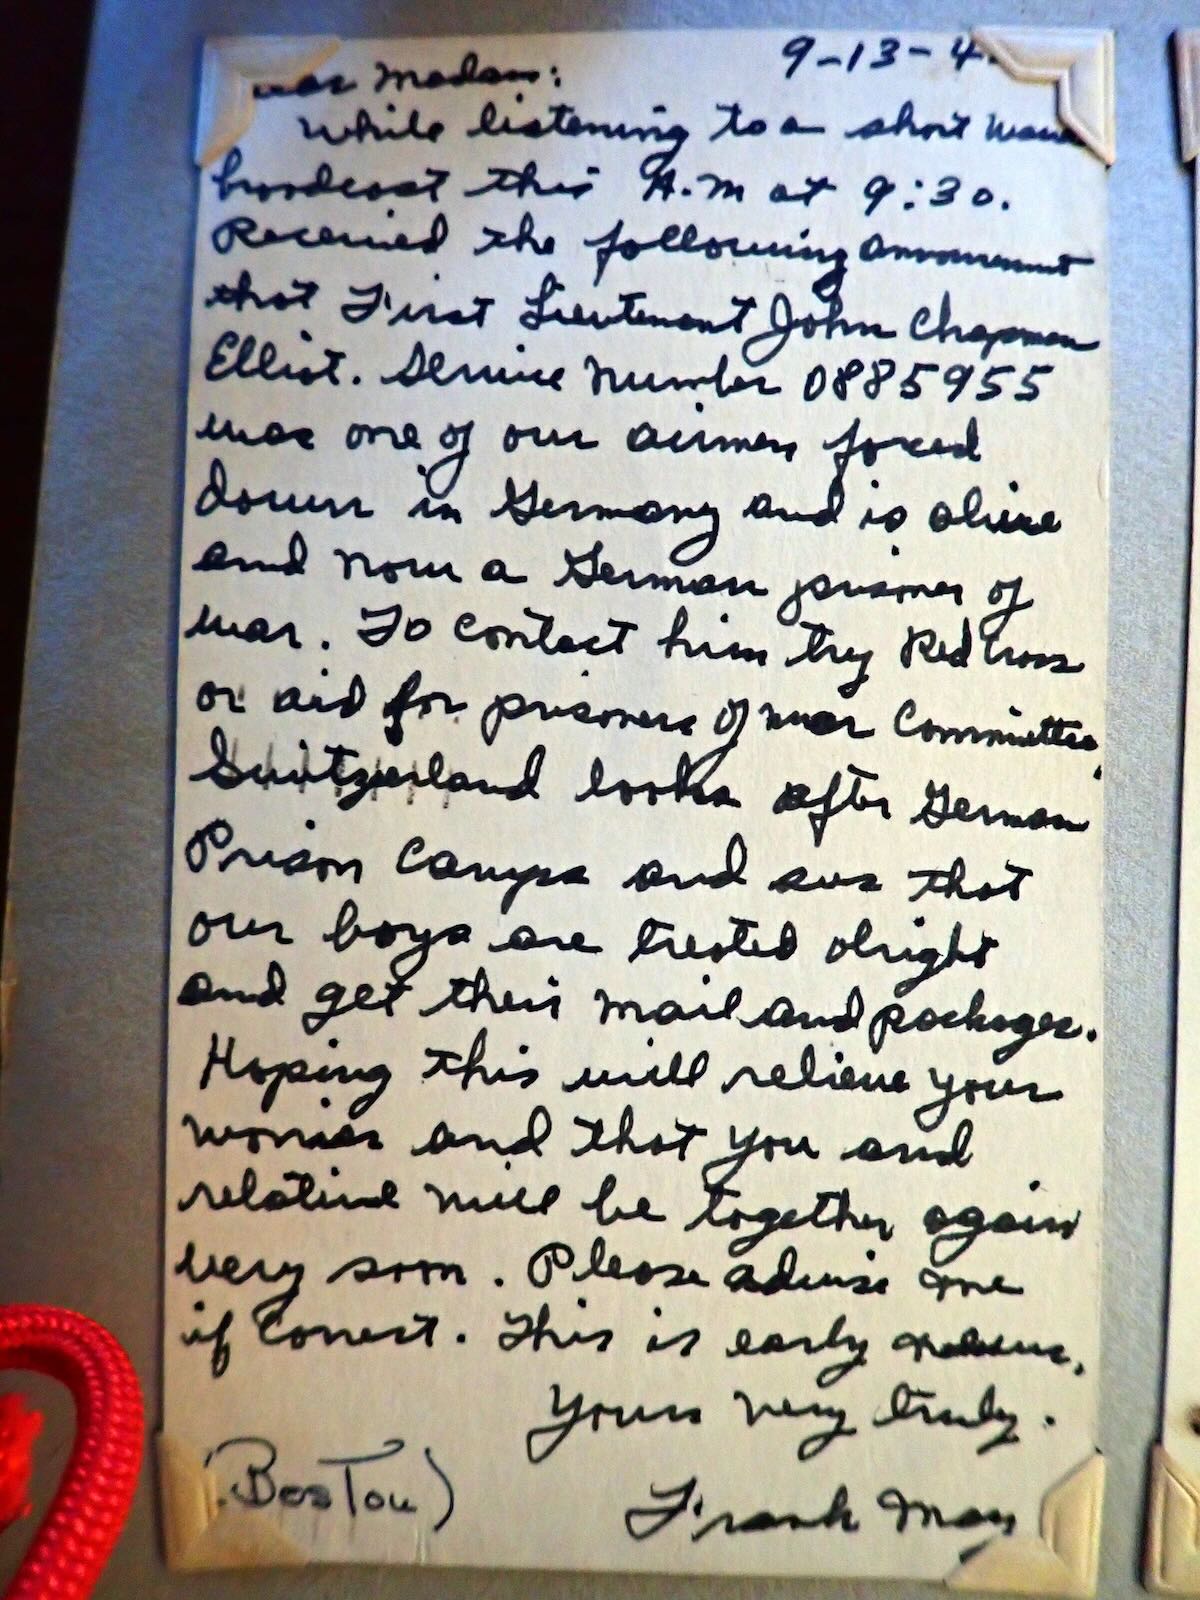 9-13-4
Dear Madam:
While listening to a short wave
broadcast this A.M at 9:30.
Received the following announcement
that First Lieutenant John Chapman
Elliot. Service Number 0885955
was one of our airmen forced
down in Germany and is alive
and now a German prisoner of
war. To contact him try Red Cross
or aid for prisoners of war Committee,
Switzerland looks after German
Prison Camps and sees that
our boys are treated alright
and get their mail and packages.
Hoping this will relieve your
worries and that you and
relative will be together again
very soon. Please advise me
if Correct. This is early news.
Yours very truly.
(Boston)
Frank May